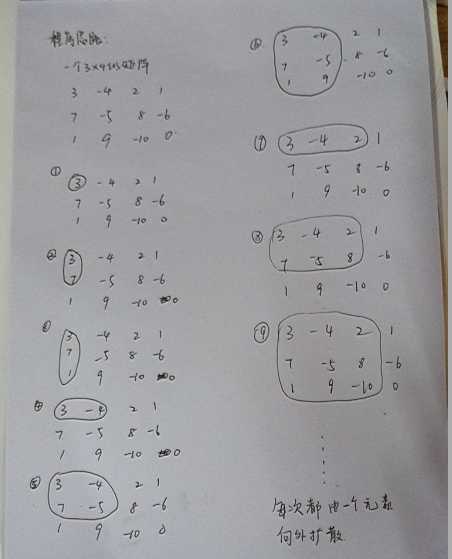 提高思路:
一个3×4的矩阵
3 -4 2 1
7 -5 8 -6
1 9 -10 0
① 3 -4 2 1
7 -5 8 -6
1 9 -10 0
② 3 -4 2 1
7 -5 8 -6
1 9 -10 0
③ 3 -4 2 1
7 -5 8 -6
1 9 -10 0
④ 3 -4 2 1
7 -5 8 -6
1 9 -10 0
⑤ 3 -4 2 1
7 -5 8 -6
1 9 -10 0
⑥ 3 -4 2 1
7 -5 8 -6
1 9 -10 0
⑦ 3 -4 2 1
7 -5 8 -6
1 9 -10 0
⑧ 3 -4 2 1
7 -5 8 -6
1 9 -10 0
⑨ 3 -4 2 1
7 -5 8 -6
1 9 -10 0
每次都由一个元素
向外扩散